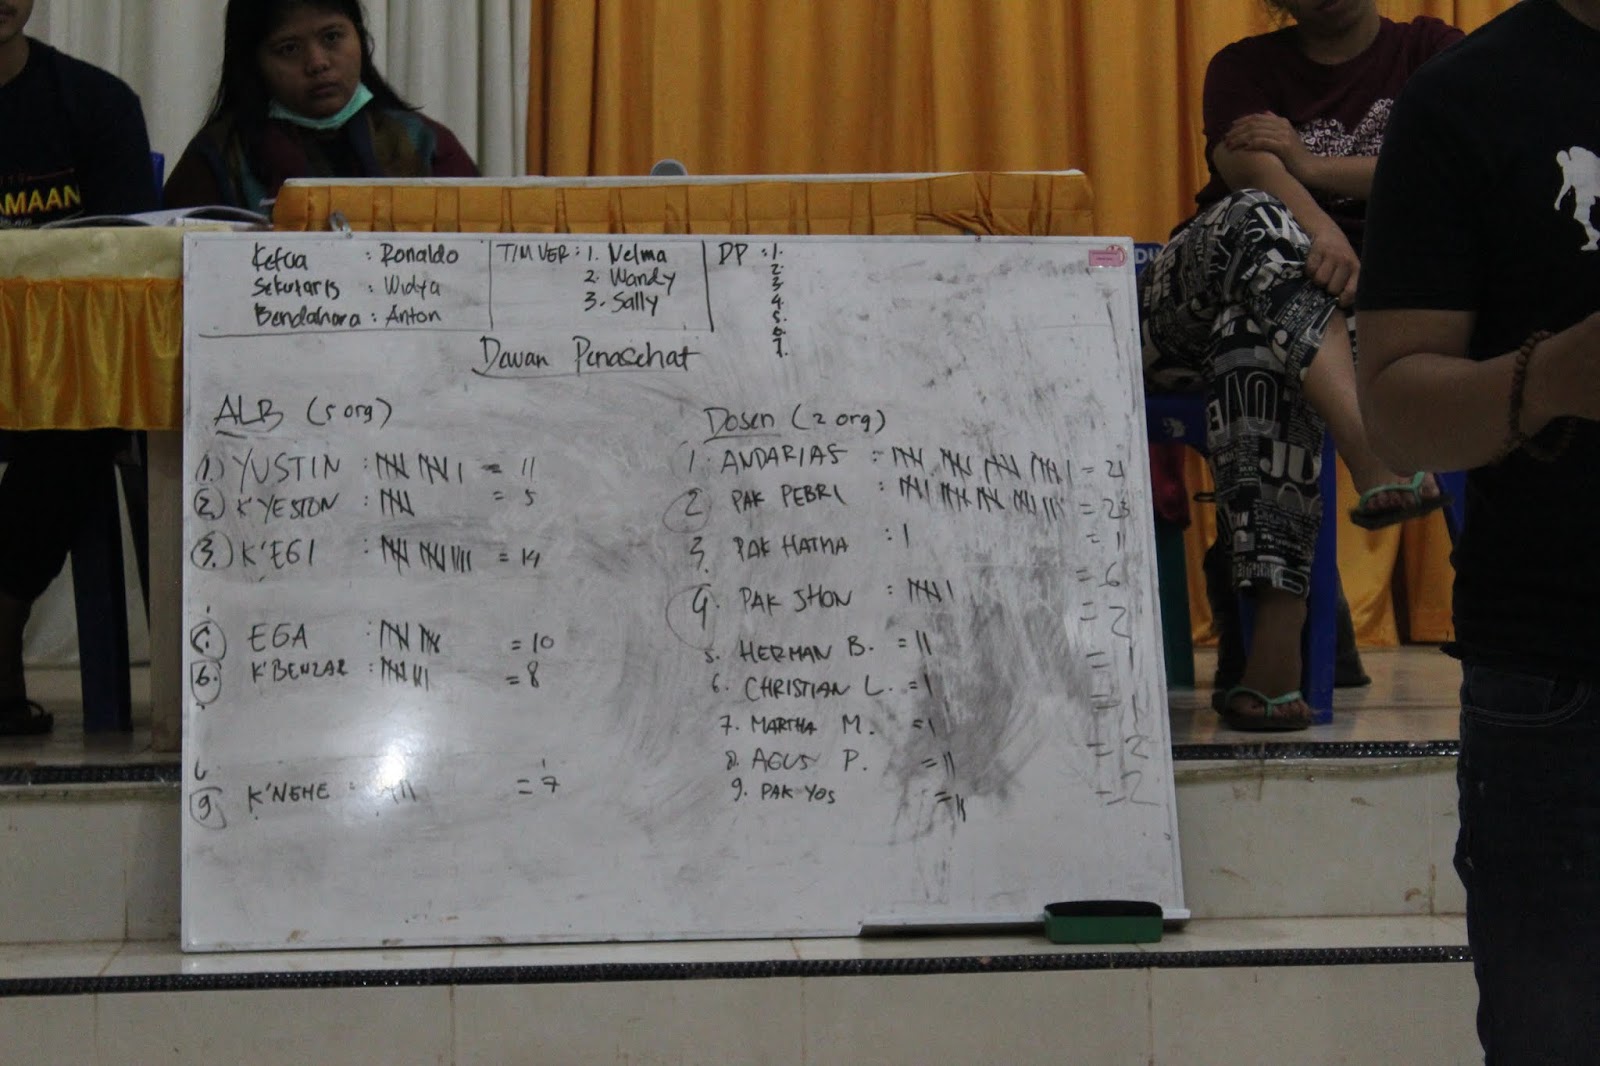 AMAAN
Ketua : Ronaldo
Sekutaris : Widya
Bendahara : Anton
TIM VER : 1. Velma
2. Wandy
3. Sally
DP : 1.
2.
3.
4.
5.
6.
7.
Dewan Penasehat
ALB (5 org)
1. YUSTIN : = 11
2. K'YESTON : = 5
3. K'EGI : = 14
EGA : = 10
6. K'BENZAR : = 8
9 K'NEHE : = 7
Dosen (2 org)
1. ANDARIAS : = 21
2 PAK PEBRI : = 23
3. PAK HATMA : 1 = 11
4. PAK JHON : = 6
5. HERMAN B. = 11 = 2
6. CHRISTIAN L. = 1 = 1
7. MARTHA M. = 1 = 1
8. AGUS P. = 11 = 2
9. PAK YOS = 11 = 2